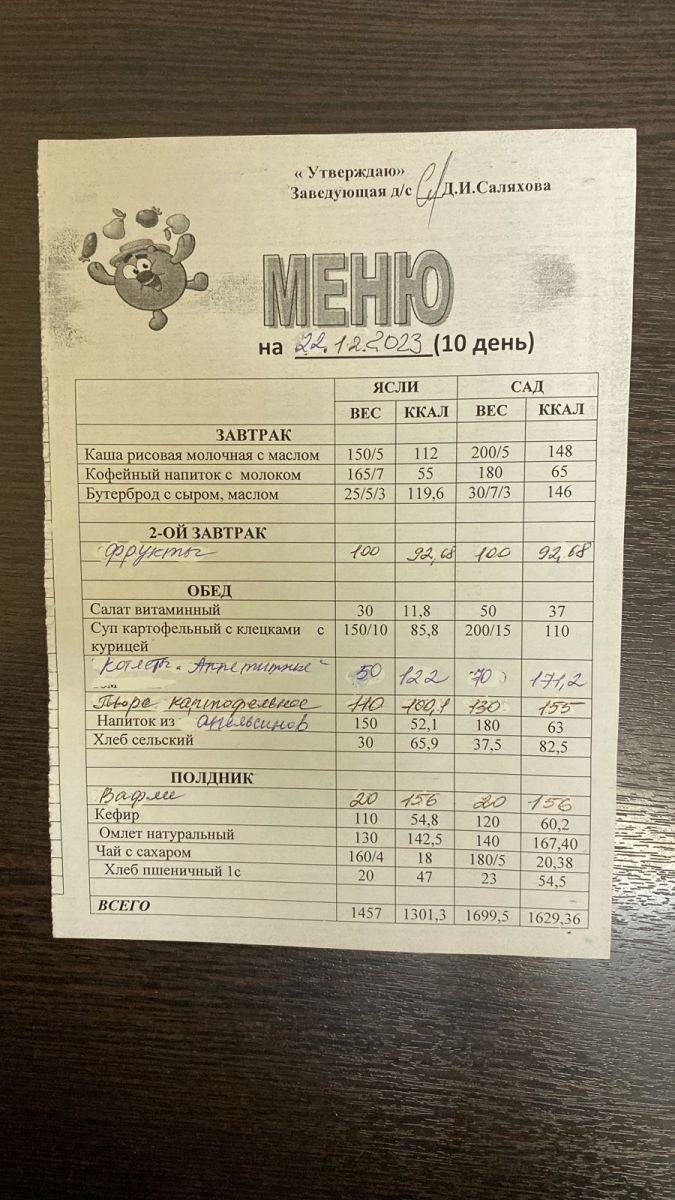 « Утверждаю»
Заведующая д/с Д.И.Саляхова
МЕНЮ
на 22.12.2023 (10 день)
ЯСЛИ САД
ВЕС ККАЛ ВЕС ККАЛ
ЗАВТРАК
Каша рисовая молочная с маслом 150/5 112 200/5 148
Кофейный напиток с молоком 165/7 55 180 65
Бутерброд с сыром, маслом 25/5/3 119,6 30/7/3 146
2-ОЙ ЗАВТРАК
Фрукты 100 92,68 100 92,68
ОБЕД
Салат витаминный 30 11,8 50 37
Суп картофельный с клецками с 150/10 85,8 200/15 110
курицей
Котлеты "Аппетитные" 50 122 70 171,2
Пюре картофельное 110 100,1 130 155
Напиток из апельсинов 150 52,1 180 63
Хлеб сельский 30 65,9 37,5 82,5
ПОЛДНИК
Вафли 20 156 20 156
Кефир 110 54,8 120 60,2
Омлет натуральный 130 142,5 140 167,40
Чай с сахаром 160/4 18 180/5 20,38
Хлеб пшеничный 1с 20 47 23 54,5
ВСЕГО 1457 1301,3 1699,5 1629,36